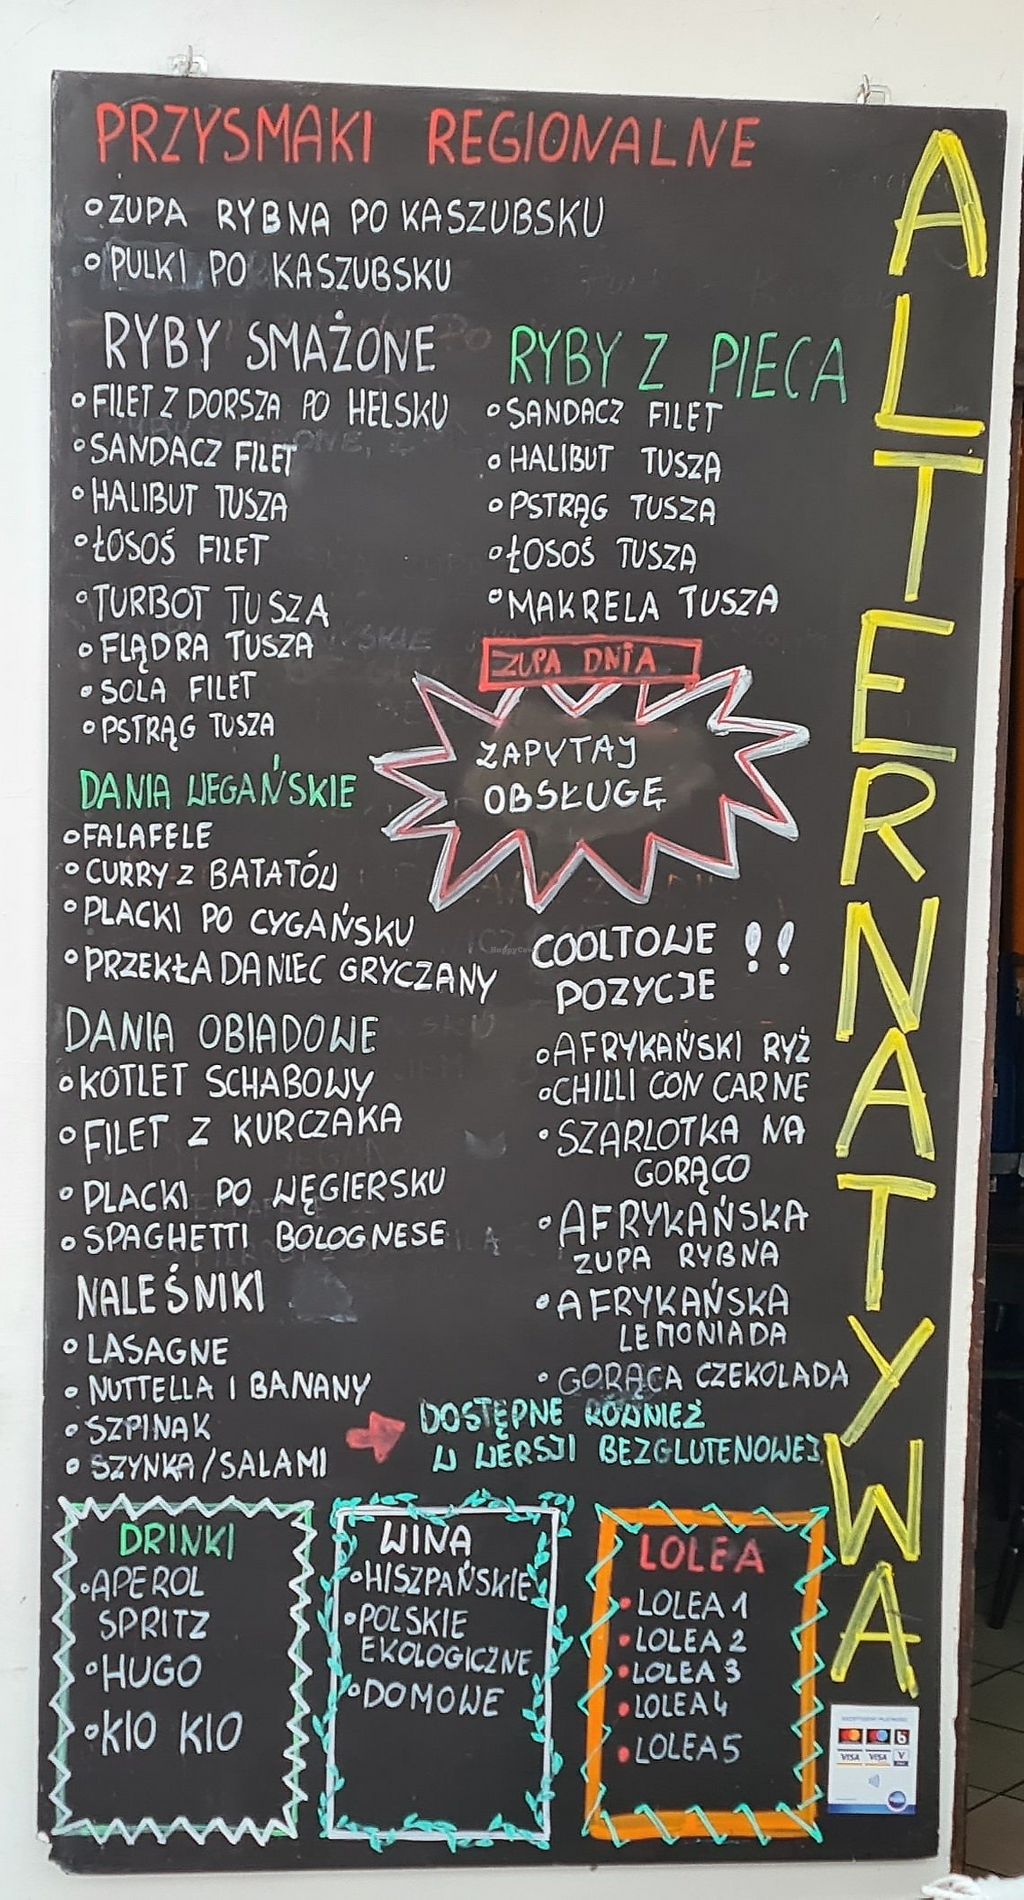 PRZYSMAKI REGIONALNE
ZUPA RYBNA PO KASZUBSKU
PULKI PO KASZUBSKU
RYBY SMAŻONE
FILET Z DORSZA PO HELSKU
SANDACZ FILET
HALIBUT TUSZA
ŁOSOŚ FILET
TURBOT TUSZA
FLĄDRA TUSZA
SOLA FILET
PSTRĄG TUSZA
RYBY Z PIECA
SANDACZ FILET
HALIBUT TUSZA
PSTRĄG TUSZA
ŁOSOŚ TUSZA
MAKRELA TUSZA
ZUPA DNIA
ZAPYTAJ
OBSŁUGĘ
DANIA WEGAŃSKIE
FALAFELE
CURRY Z BATATÓW
PLACKI PO CYGAŃSKU
PRZEKŁADANIEC GRYCZANY
DANIA OBIADOWE
KOTLET SCHABOWY
FILET Z KURCZAKA
PLACKI PO WĘGIERSKU
SPAGHETTI BOLOGNESE
NALEŚNIKI
LASAGNE
NUTTELLA I BANANY
SZPINAK
SZYNKA/SALAMI
COOLTOWE !!
POZYCJE
AFRYKAŃSKI RYŻ
CHILLI CON CARNE
SZARLOTKA NA
GORĄCO
AFRYKAŃSKA
ZUPA RYBNA
AFRYKAŃSKA
LEMONIADA
GORĄCA CZEKOLADA
DOSTĘPNE RÓWNIEŻ
W WERSJI BEZGLUTENOWEJ
DRINKI
APEROL
SPRITZ
HUGO
KIO KIO
WINA
HISZPAŃSKIE
POLSKIE
EKOLOGICZNE
DOMOWE
LOLEA
LOLEA 1
LOLEA 2
LOLEA 3
LOLEA 4
LOLEA 5
ALTERNATYWA
VISA VISA V
HappyCow